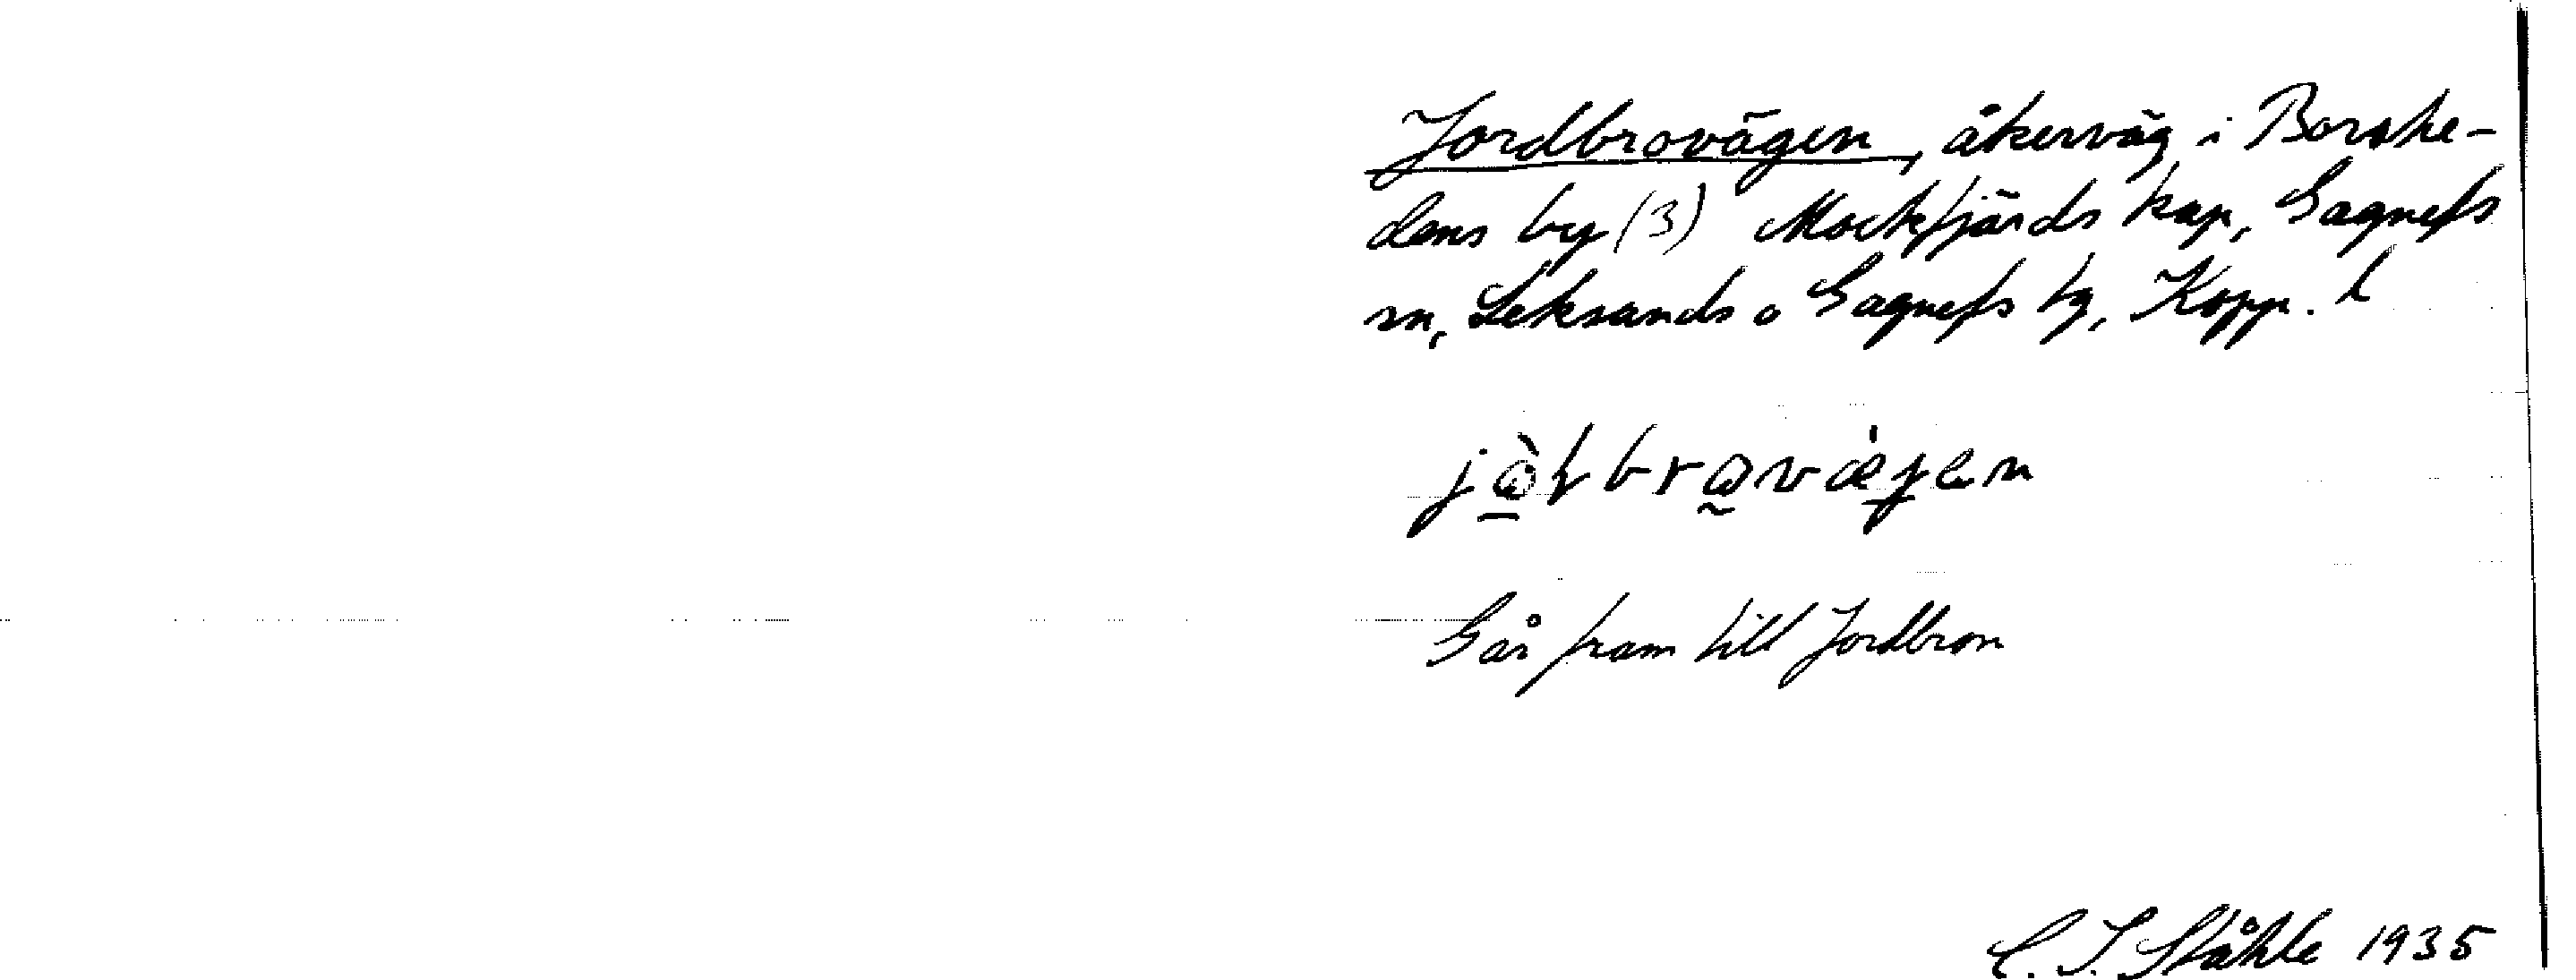 Jordbrovägen, åkerväg i Borshe-
dens by (3) Mockfjärds kap, Gagnefs
sn, Leksands o Gagnefs tg, Kopp. l
Går fram till Jordbron
C. I. Ståhle 1935